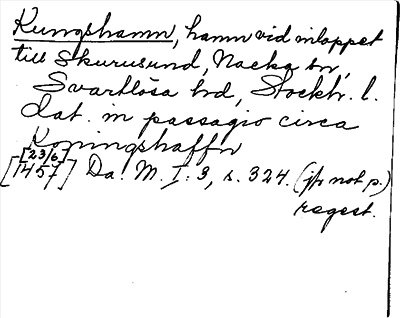 Kungshamn, hamn vid inloppet
till Skurusund, Nacka sn,
Svartlösa hd, Stockh. l.
dat. in passagio circa
Koningshaffn
[23/6]
[1457] Da. M. I: 3, s. 324. (jfr not p.)
regest.